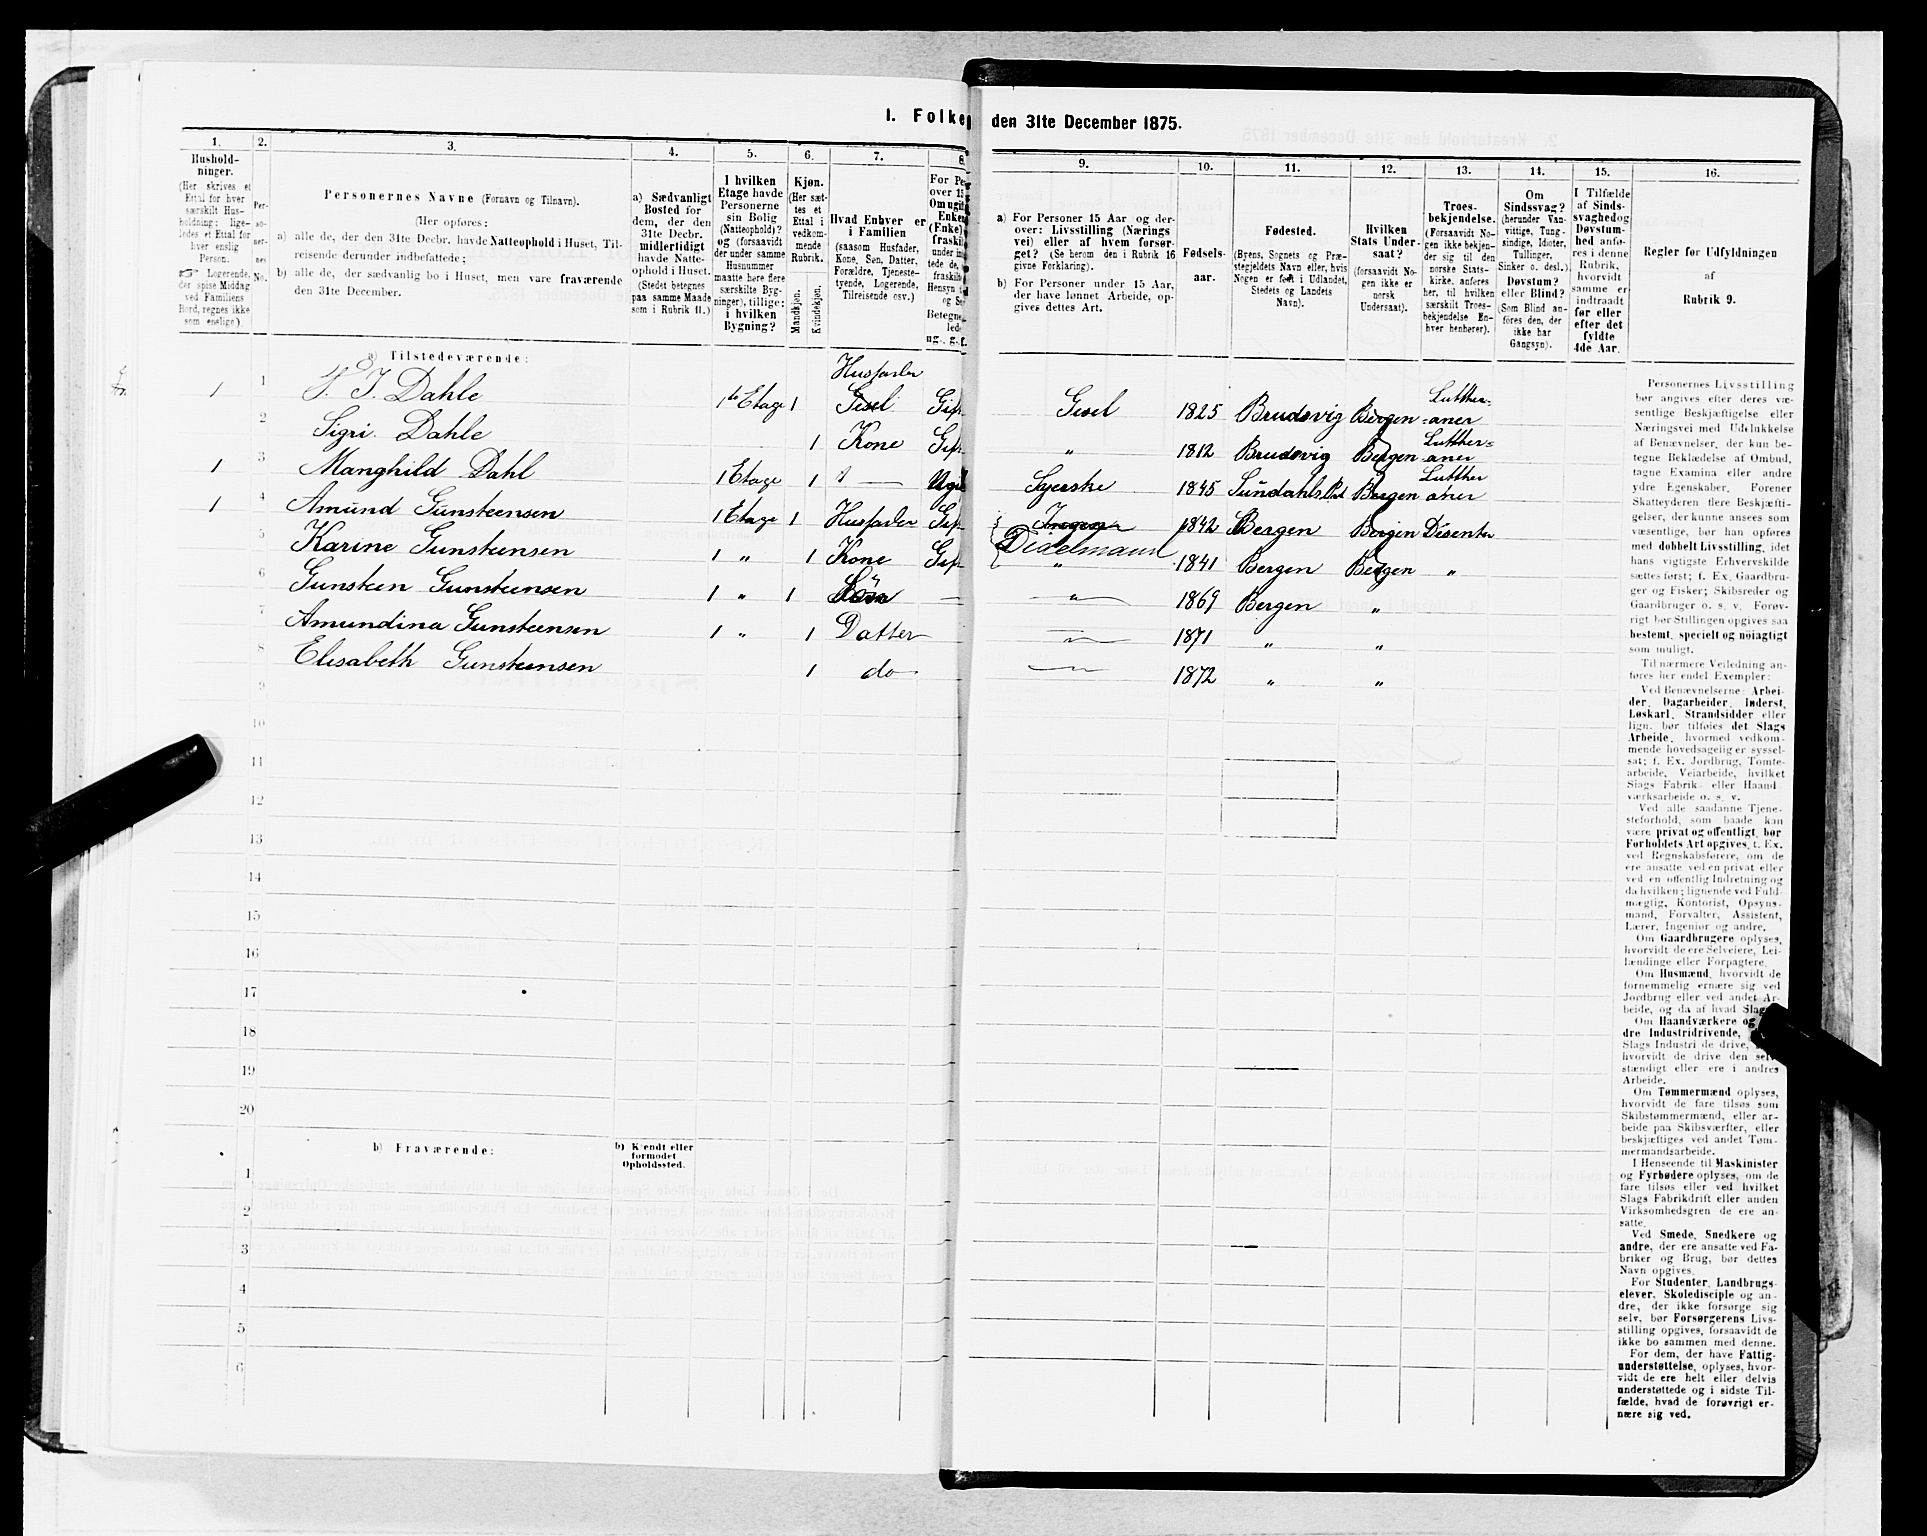 1. Folke den 31te December 1875.
1. 2. 3. 4. 5. 6. 7. 8.
Hushold-
ninger.
(Her skrives et
Ettal for hver
særskilt Hus-
holdning; lige-
ledes et Ettal for
hver enslig
Person.
☞ Logerende,
der spise Middag
ved Familiens
Bord, regnes ikke
som enslige)
Per-
so-
ner-
nes
No.
Personernes Navne (Fornavn og Tilnavn).
(Her opføres:
a) alle de, der den 31te Decbr. havde Natteophold i Huset, Til-
reisende derunder indbefattede;
b) alle de, der sædvanlig bo i Huset, men vare fraværende
den 31te December.
a) Sædvanligt
Bosted for
dem, der den
31te Decbr.
midlertidigt
havde Natte-
ophold i Huset.
(Stedet betegnes
paa samme Maade
som i Rubrik 11.)
I hvilken
Etage havde
Personerne
sin Bolig
(Natteophold)?
og (forsaavidt
der under samme
Husnummer
maatte høre flere
særskilte Byg-
ninger), tillige:
i hvilken
Bygning?
Kjøn.
(Her sæt-
tes et
Ettal i
vedkom-
mende
Rubrik.
Mandkjøn.
Kvindekjøn.
Hvad Enhver er
i Familien
(saasom Husfader,
Kone, Søn, Datter,
Forældre, Tjeneste-
tyende, Logerende,
Tilreisende osv.)
For Pe
over 15
Om ugift
Enke
(Enke)
fraski
under in
tede de,
fraskil
Hensyn t
og Se
Betegne
lede
ug., g.,
9. 10. 11. 12. 13. 14. 15. 16.
a) For Personer 15 Aar og der-
over: Livsstilling (Nærings
vei) eller af hvem forsør-
get? (Se herom den i Rubrik 16
givne Forklaring).
b) For Personer under 15 Aar,
der have lønnet Arbeide, op-
gives dettes Art.
Fødsels-
aar.
Fødested.
(Byens, Sognets og Præ-
stegjeldets Navn eller, hvis
Nogen er født i Udlandet,
Stedets og Landets
Navn).
Hvilken
Stats Under-
saat?
(forsaavidt No-
gen ikke er
norsk
Undersaat).
Troes-
bekjendelse.
(Forsaavidt No-
gen ikke bekjen-
der sig til den
norske Stats-
kirke, anføres
her, til hvilken
særskilt Troes-
bekjendelse En-
hver henhører).
Om
Sindssvag?
(herunder Van-
vittige, Tung-
sindige, Idioter,
Tullinger,
Sinker o. desl.)
Døvstum?
eller Blind?
(Som Blind an-
føres den, der
ikke har
Gangsyn).
I Tilfælde
af Sinds-
svaghed og
Døvstum-
hed anfø-
res i denne
Rubrik,
hvorvidt
samme er
indtraadt
før eller
efter det
fyldte
4de Aar.
Regler for Udfyldningen
af
Rubrik 9.
a) Tilstedeværende:
1 1 J. Dahle 1ste Etage 1 Husfader Gisel Gift Gisel 1825 Brudsvig Bergen Lutther=
=aner
2 Sigri Dahle 1 Kone Gift „ 1812 Brudsvig Bergen Lutther=
aner
1 3 Manghild Dahl 1 Etage 1 Ugift Syerske 1845 Sundahls Bergen Lutther
aner
1 4 Amund Gunsteensen 1 Etage 1 Husfader Gift 1842 Bergen Bergen Disenter
Didelmann
5 Karine Gunsteensen 1 „ 1 Kone Gift „ 1841 Bergen Bergen „
6 Gunsteen Gunsteensen 1 „ 1 Søn — „ 1869 Bergen „
7 Amundina Gunsteensen 1 „ 1 Datter „ 1871 „ „
8 Elisabeth Gunsteensen 1 do „ 1872 „ „
9
10
11
12
13
14
15
16
17
18
19
20
b) Fraværende:
b) Kjendt eller
formodet
Opholdssted.
1
2
3
4
5
6
Personernes Livsstilling
bør angives efter deres væ-
sentlige Beskjæftigelse eller
Næringsvei med Udelukkelse
af Benævnelser, der kun be-
tegne Beklædelse af Ombud,
tagne Examina eller andre
ydre Egenskaber. Forener
Skatteyderen flere Beskjæfti-
gelser, der kunne ansees som
væsentlige, bør han opføres
med dobbelt Livsstilling, idet
hans vigtigste Erhvervskilde
sættes først; f. Ex. Gaardbru-
ger og Fisker; Skibsreder og
Gaardbruger o. s. v. Forøv-
rigt bør Stillingen opgives saa
bestemt, specielt og nøiagtigt
som muligt.
Til nærmere Veiledning an-
føres her endel Exempler:
Ved Benævnelserne: Arbei-
der, Dagarbeider, Inderst,
Løskarl, Strandsidder eller
lign. bør tilføies det Slags
Arbeide, hvormed vedkom-
mende hovedsagelig er syssel-
sat; f. Ex. Jordbrug, Tomte-
arbeide, Veiarbeide, hvilket
Slags Fabrik- eller Haand-
værksarbeide o. s. v.
Ved alle saadanne Tjene-
steforhold, som baade kan
være privat og offentligt, bør
Forholdets Art opgives, f. Ex.
ved Regnskabsførere, om de
ere ansatte ved en privat eller
ved en offentlig Indretning og
da hvilken; lignende ved Fuld-
mægtig, Kontorist, Opsyns-
mand, Forvalter, Assistent,
Lærer, Ingeniør og andre.
Om Gaardbrugere oplyses,
hvorvidt de ere Selveiere, Lei-
lændinge eller Forpagtere.
Om Husmænd, hvorvidt de
fornemmelig ernære sig ved
Jordbrug eller ved andet Ar-
beide, og da af hvad Slag
Om Haandværkere og
dre Industridrivende,
Slags Industri de drive,
hvorvidt de drive den selv-
stændigt eller ere i andres
Arbeide.
Om Tømmermænd oplyses,
hvorvidt de fare tilsøs som
Skibstømmermænd, eller ar-
beide paa Skibsværfter, eller
beskjæftiges ved andet Tøm-
mermandsarbeide.
I Henseende til Maskinister
og Fyrbødere oplyses, om de
fare tilsøs eller ved hvilket
Slags Fabrikdrift eller anden
Virksomhedsgren de ere an-
satte.
Ved Smede, Snedkere og
andre, der ere ansatte ved Fa-
briker og Brug, bør dettes
Navn opgives.
For Studenter, Landbrugs-
elever, Skoledisciple og an-
dre, der ikke forsørge sig
selv, bør Forsørgerens Livs-
stilling opgives, forsaavidt de
ikke bo sammen med denne.
For dem, der have Fattig-
understøttelse, oplyses, hvor-
vidt de ere helt eller delvis
understøttede og i sidste Til-
fælde, hvad de forøvrigt er-
nære sig ved.